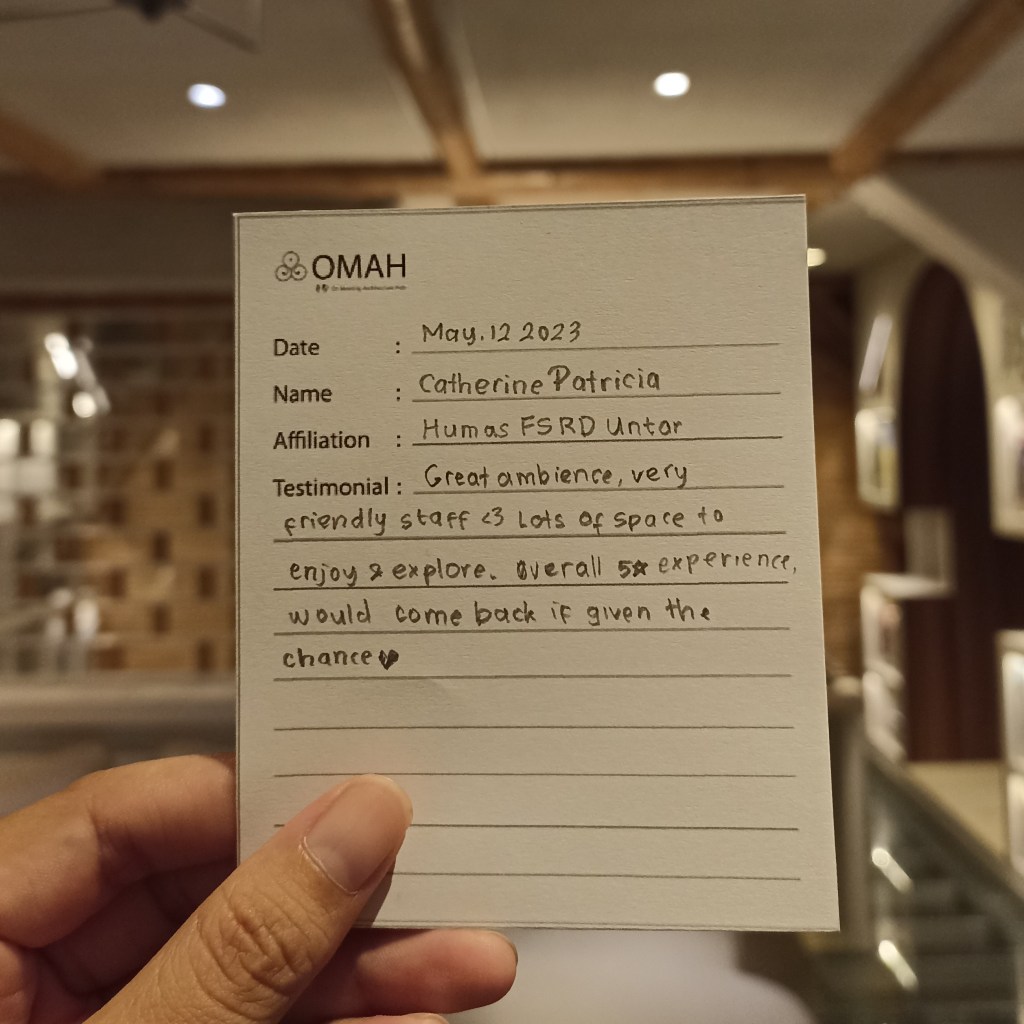 OMAH
Date : May. 12 2023
Name : Catherine Patricia
Affiliation : Humas FSRD Untar
Testimonial : Great ambience, very
friendly staff <3 Lots of space to
enjoy & explore. Overall 5★ experience,
would come back if given the
chance ♥